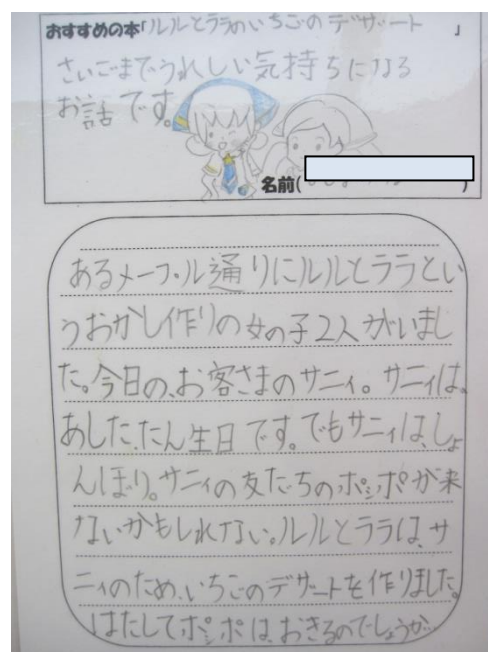 おすすめの本「ルルとララのいちごのデザート」
さいごまでうれしい気持ちになる
お話です。
名前( )
あるメープル通りにルルとララとい
うおかし作りの女の子2人がいまし
た。今日の、お客さまのサニィ。サニィは、
あした、たん生日です。でもサニィは、しょ
んぼり。サニィの友だちのポシポが来
ないかもしれない。ルルとララは、サ
ニィのため、いちごのデザートを作りました。
はたしてポシポは、おきるのでしょうか。